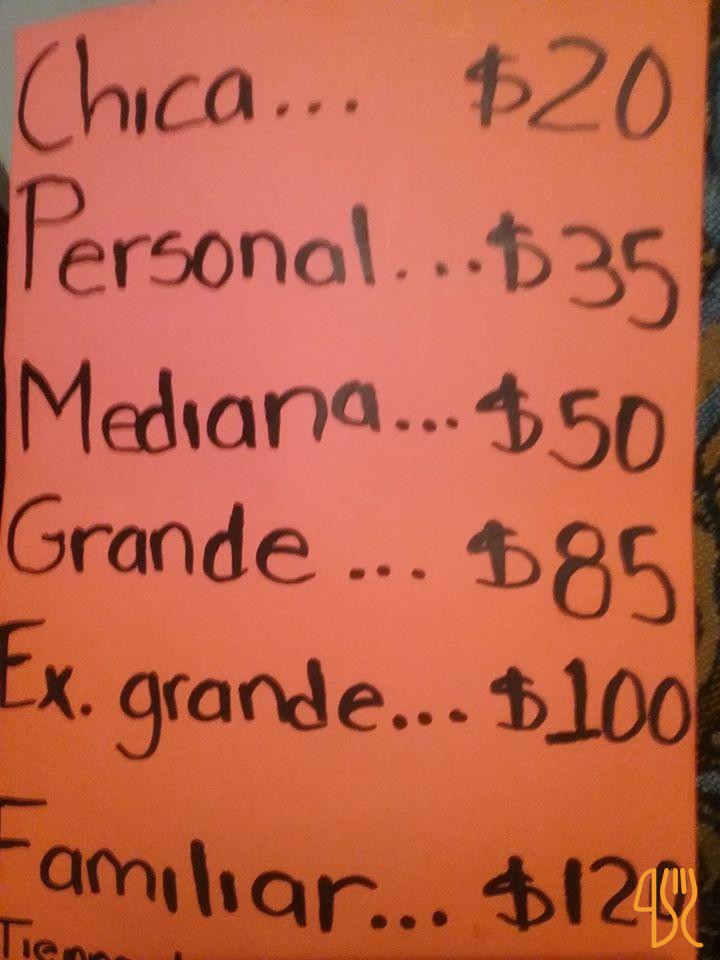 Chica... $20
Personal...$35
Mediana...$50
Grande... $85
Ex. grande...$100
Familiar... $120